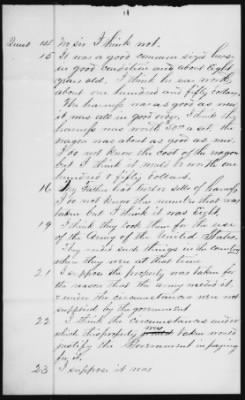 Quest 14 No sir I think not.
15 It was a good common sized horse
in good condition and about Eight
years old. I think he was worth
about one hundred and fifty dollars.
The harness was as good as new
it was all in good order, I think the
harness was worth 30$ a set the
wagon was about as good as new
I do not know the cost of the wagon
but I think it would be worth one
hundred & fifty dollars.
16 My Father had Eight sells of harness
I do not know the number that was
taken but I think it was Eight,
19 I think they took them for the use
of the Army of the United States,
They used such things in the country
when they were at that time
21 I suppose the property was taken for
the reason that the army needed it
& under the circumstances were not
supplied by the government
22 I think the circumstances under
which this property was taken would
justify the Government in paying
for it.
23 I suppose it was